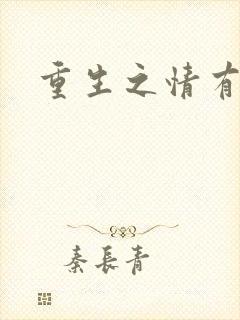 重生之情有
秦長青